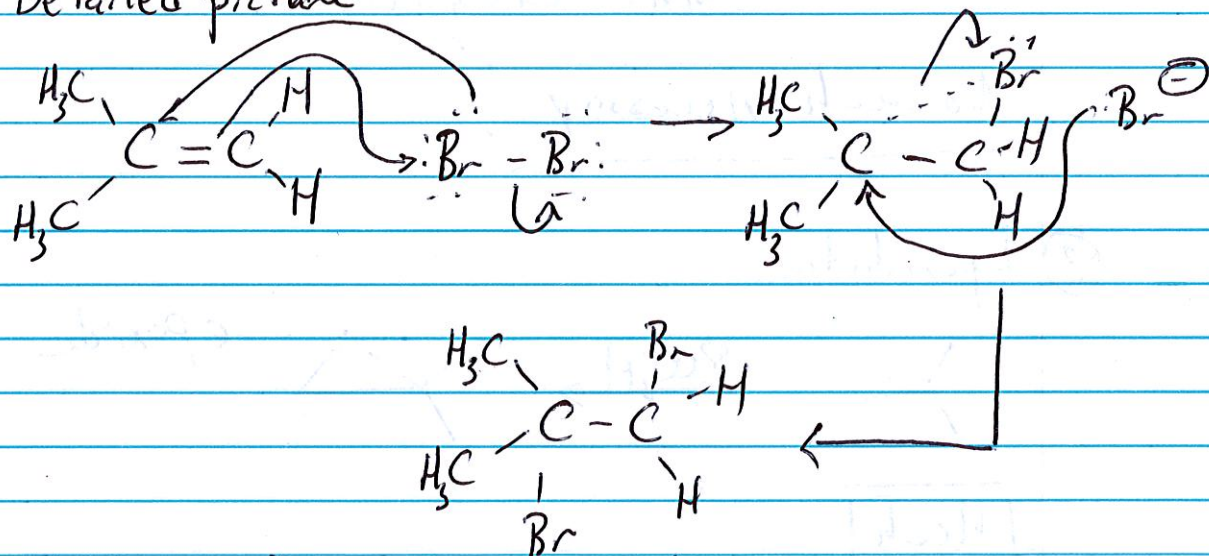 Detailed picture
H₃C H
C = C :Br - Br:
H₃C H
H₃C Br
C - C -H :Br ⊖
H₃C H
H₃C Br
C - C -H
H₃C H
Br